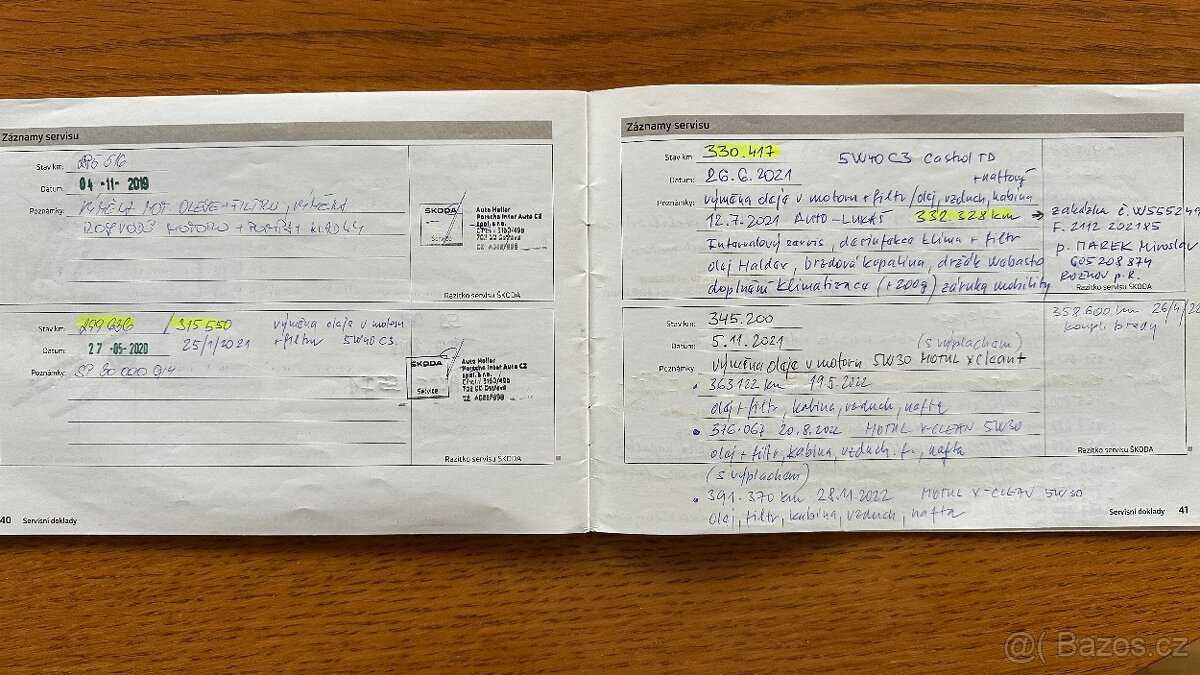 Záznamy servisu
Stav km:
Datum: 04 -11- 2019
Poznámky: VÝMĚNA MOT. OLEJE+FILTRU, VÝMĚNA
ROZVODŮ MOTORU +
ŠKODA
Servis
Auto Heller
Porsche Inter Auto CZ
spol. s r.o.
702 00 Ostrava
Razítko servisu ŠKODA
Stav km: 299 636 / 315 550 výměna oleje v motoru
Datum: 27 -05- 2020 25/1/2021 +filtru 5W40 C3
Poznámky: SP 30 000
ŠKODA
Service
Auto Heller
Porsche Inter Auto CZ
spol. s r.o.
702 00 Ostrava
Razítko servisu ŠKODA
40 Servisní doklady
Záznamy servisu
Stav km: 330.417 5W40 C3 Castrol TD
Datum: 26.6.2021 +naftový
Poznámky: výměna oleje v motoru + filtr /olej, vzduch, kabina
12.7.2021 AUTO-LUKÁŠ 332.328 km →
Intervalový servis, dezinfekce klima + filtr
olej Haldex, brzdová kapalina, držák Webasto
doplnění klimatizace (+200g) záruka mobility
zakázka č. W555249
F. 2112 202185
p. MAREK Miroslav
605 208 874
ROŽNOV p. R.
Razítko servisu ŠKODA
Stav km: 345.200
Datum: 5.11.2021 (s výplachem)
Poznámky: výměna oleje v motoru 5W30 MOTUL xclean+
• 363122 km 19.5.2022
olej + filtr, kabina, vzduch, nafta
• 376.067 20.8.2022 MOTUL X-CLEAN 5W30
olej + filtr, kabina, vzduch. f., nafta
(s výplachem)
• 391.370 km 28.11.2022 MOTUL X-CLEAN 5W30
olej, filtr, kabina, vzduch, nafta
358.600 km 26/4/22
kompl. brzdy
Razítko servisu ŠKODA
Servisní doklady 41
Bazos.cz